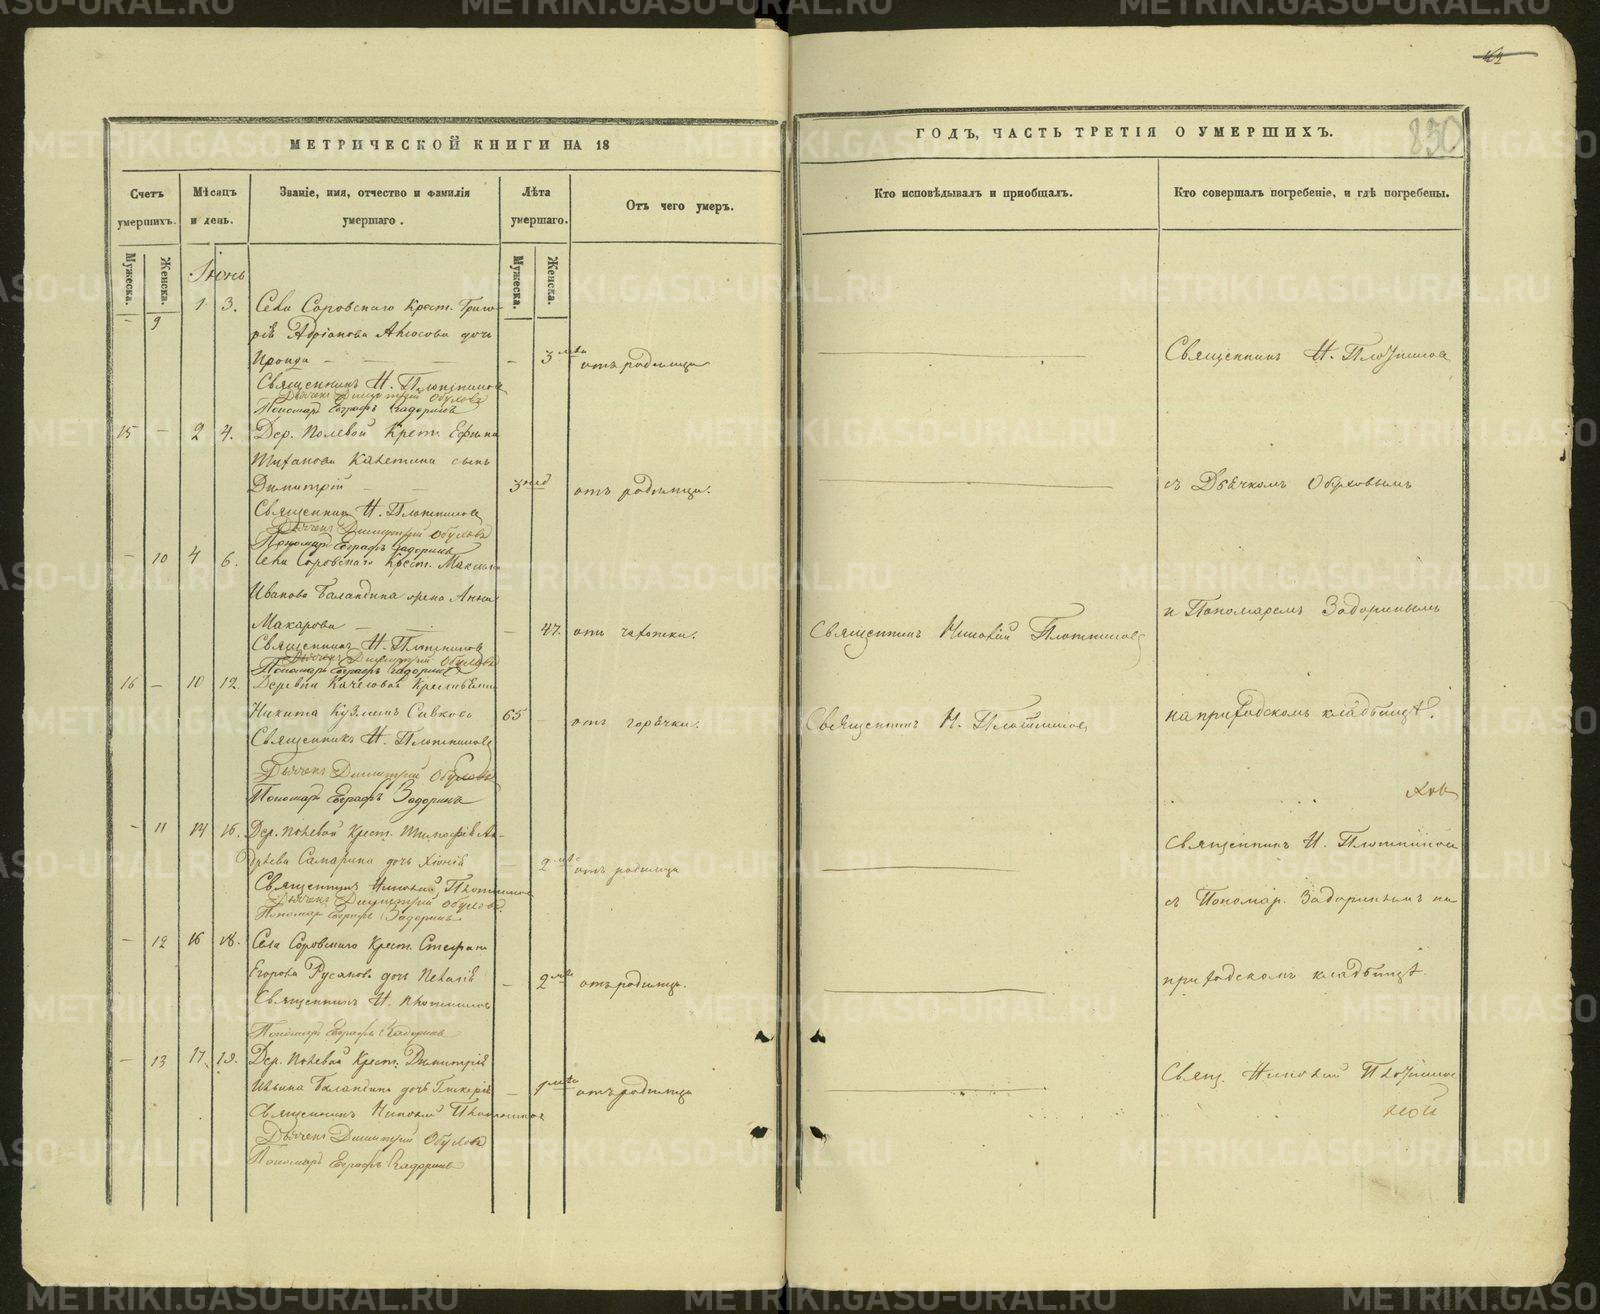 МЕТРИЧЕСКОЙ КНИГИ НА 18
Счетъ умершихъ.
Мѣсяцъ и день.
Званіе, имя, отчество и фамилія умершаго.
Лѣта умершаго.
Отъ чего умеръ.
Мужеска.
Женска.
Мужеска.
Женска.
Іюнь
– 9 1 3. Села Соровскаго Крест. Григо-
рія Адріанова дочь
– 3 отъ родимца
Священникъ Н. Плотниковъ
Дьячекъ Димитрій Обуховъ
Пономарь Евграфъ Задоринъ
15 – 2 4. Дер. Полевой Крест. Ефима
сынъ
Димитрій – – 3 нед отъ родимца.
Священникъ Н. Плотниковъ
Дьячекъ Димитрій Обуховъ
Пономарь Евграфъ Задоринъ
– 10 4 6. Села Соровскаго Крест. Максима
Иванова Баландина жена Анна
Макарова – – – 47. отъ чахотки.
Священникъ Н. Плотниковъ
Дьячекъ Димитрій Обуховъ
Пономарь Евграфъ Задоринъ
16 – 10 12. Деревни Крестьянинъ
Никита Кузминъ Сивковъ 65 – отъ горячки.
Священникъ Н. Плотниковъ
Дьячекъ Димитрій Обуховъ
Пономарь Евграфъ Задоринъ
– 11 14 16. Дер. Полевой Крест. Тимофея Ан-
дреева Самарина дочь Хіонія – 2 отъ родимца
Священникъ Николай Плотниковъ
Дьячекъ Димитрій Обуховъ
Пономарь Евграфъ Задоринъ
– 12 16 18. Села Соровскаго Крест. Стефана
Егорова Русакова дочь Пелагія – 2 отъ родимца.
Священникъ Н. Плотниковъ
Пономарь Евграфъ Задоринъ
– 13 17. 19. Дер. Полевой Крест. Димитрія
Ильина Баландина дочь Гликерія – отъ родимца
Священникъ Николай Плотниковъ
Дьячекъ Димитрій Обуховъ
Пономарь Евграфъ Задоринъ
ГОДЪ, ЧАСТЬ ТРЕТІЯ О УМЕРШИХЪ.
850
Кто исповѣдывалъ и приобщалъ.
Кто совершалъ погребеніе, и гдѣ погребены.
Священникъ Н. Плотниковъ
съ Дьячкомъ Обуховымъ
и Пономаремъ Задоринымъ
Священникъ Николай Плотниковъ
Священникъ Н. Плотниковъ
на приходскомъ кладбищѣ.
Священникъ Н. Плотниковъ
съ Пономар. Задоринымъ на
приходскомъ кладбищѣ.
Свящ. Николай Плотников
METRIKI.GASO-URAL.RU